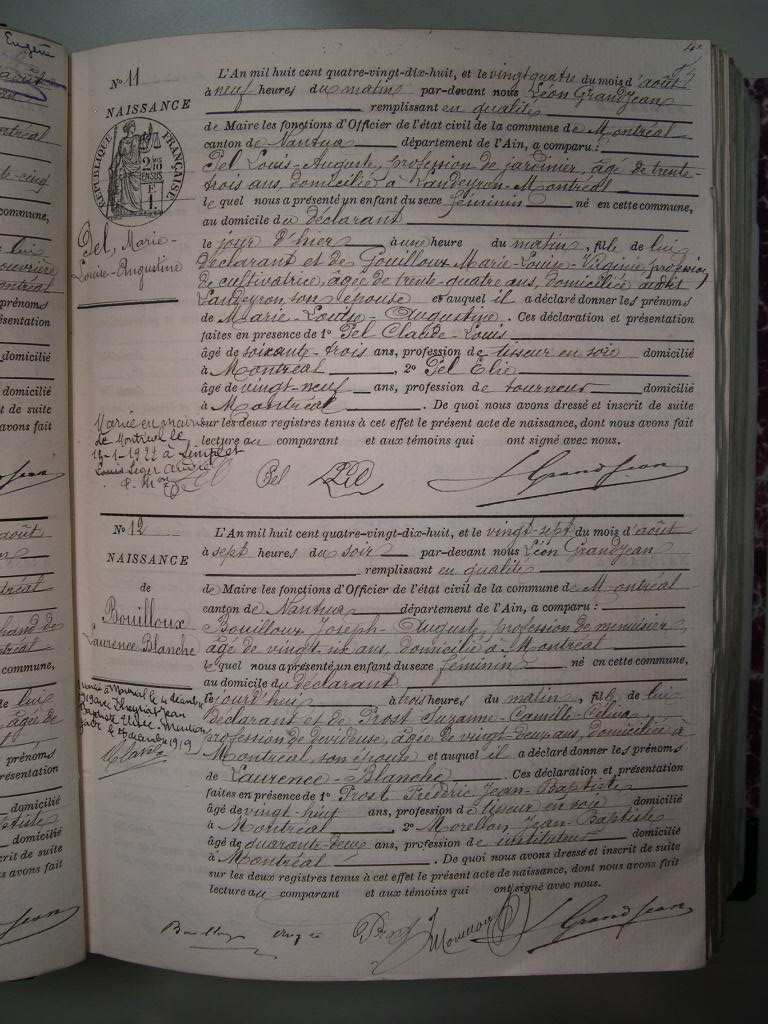 Eugén
août
Montréal
commune,
prénoms
présentation
domicilié
domicilié
de suite
avons fait
N° 11
NAISSANCE
RÉPUBLIQUE FRANÇAISE
Pel, Marie-
Louise-Augustine
L'An mil huit cent quatre-vingt-dix-huit, et le vingt quatre du mois d'août
à neuf heures du matin par-devant nous Léon Grandjean
remplissant en qualité
de Maire les fonctions d'Officier de l'état civil de la commune de Montréal
canton de Nantua département de l'Ain, a comparu :
Pel Louis-Auguste, profession de jardinier, âgé de trente-
trois ans, domicilié à Landeyron-Montréal
lequel nous a présenté un enfant du sexe féminin né en cette commune,
au domicile du déclarant
le jour d'hier à une heure du matin, fille de lui
déclarant et de Gouilloux Marie-Louise-Virginie, profession
de cultivatrice, âgée de trente-quatre ans, domiciliée audit
Landeyron, son épouse et auquel il a déclaré donner les prénoms
de Marie-Louise-Augustine. Ces déclaration et présentation
faites en presence de 1° Pel Claude-Louis
âgé de soixante-trois ans, profession de tisseur en soie domicilié
à Montréal, 2° Pel Elie
âgé de vingt-neuf ans, profession de tourneur domicilié
à Montréal. De quoi nous avons dressé et inscrit de suite
sur les deux registres tenus à cet effet le présent acte de naissance, dont nous avons fait
lecture au comparant et aux témoins qui ont signé avec nous.
Marié en mairie
de Montréal le
1-1922 à
Louis Léger
Pel Pel LGrandJean
N° 12
NAISSANCE
de
Bouilloux
Laurence Blanche
L'An mil huit cent quatre-vingt-dix-huit, et le vingt-sept du mois d'août
à sept heures du soir par-devant nous Léon Grandjean
remplissant en qualité
de Maire les fonctions d'Officier de l'état civil de la commune de Montréal
canton de Nantua département de l'Ain, a comparu :
Bouilloux Joseph-Auguste, profession de menuisier,
âgé de vingt-six ans, domicilié à Montréal
lequel nous a présenté un enfant du sexe féminin né en cette commune,
au domicile du déclarant
le jourd'hui à trois heures du matin, fille de lui
déclarant et de Prost Suzanne-Camille-Célina,
profession de dévideuse, âgée de vingt-deux ans, domiciliée à
Montréal, son épouse et auquel il a déclaré donner les prénoms
de Laurence-Blanche. Ces déclaration et présentation
faites en présence de 1° Prost Frédéric Jean-Baptiste
âgé de vingt-neuf ans, profession de tisseur en soie domicilié
à Montréal, 2° Morellon Jean-Baptiste
âgé de quarante-deux ans, profession de instituteur domicilié
à Montréal. De quoi nous avons dressé et inscrit de suite
sur les deux registres tenus à cet effet le présent acte de naissance, dont nous avons fait
lecture au comparant et aux témoins qui ont signé avec nous.
Mariée à Montréal le 4 décembre
1919 avec Jean
Baptiste Mention
faite le 1919
Bouilloux Auguste Prost Morellon LGrandJean